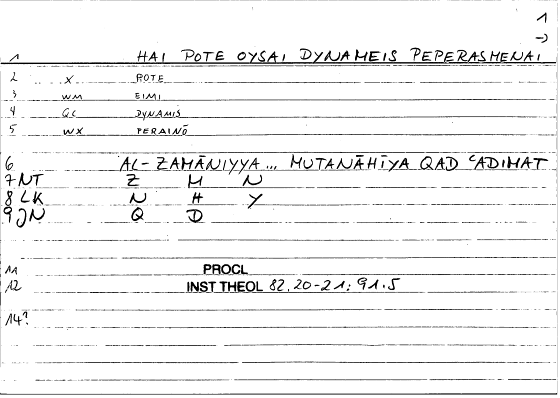 1
→
1 HAI POTE OYSAI DYNAMEIS PEPERASMENAI
2 X POTE
3 WM EIMI
4 QC DYNAMIS
5 WX PERAINŌ
6 AL-ZAMĀNIYYA... MUTANĀHĪYA QAD ʿADIMAT
7 NT Z M N
8 LK N H Y
9 JN Q D
11 PROCL
12 INST THEOL 82.20-21: 91.5
14?